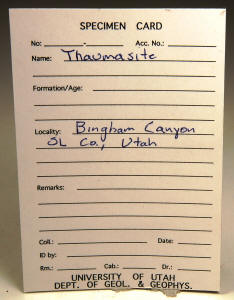 SPECIMEN CARD
No: - Acc. No.:
Name: Thaumasite
Formation/Age:
Locality: Bingham Canyon
SL Co., Utah
Remarks:
Coll.: Date:
ID by:
Rm.: Cab.: Dr.:
UNIVERSITY OF UTAH
DEPT. OF GEOL. & GEOPHYS.